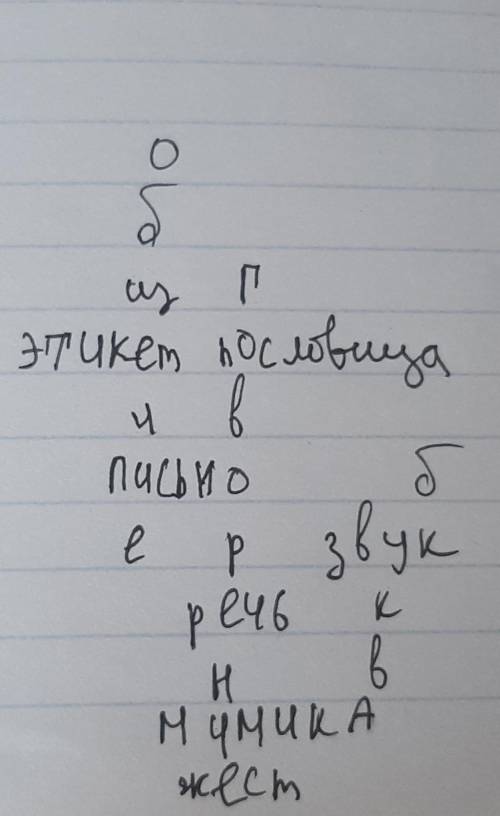 О
б
щ Г
этикет пословица
и в
письмо б
е р звук
речь к
н в
мимика
жест